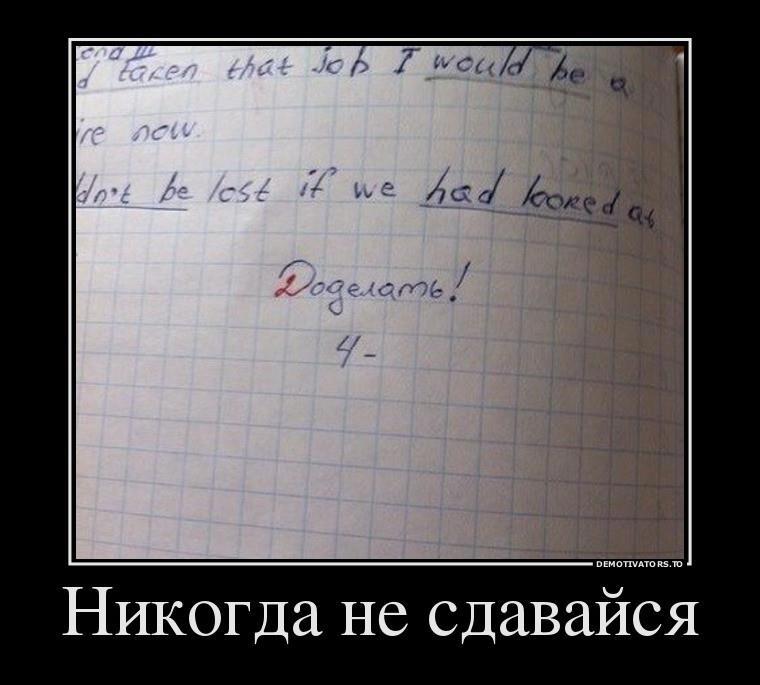 end III
d taken that job I would be a
ire now.
dn't be lost if we had looked at
Доделать!
4-
DEMOTIVATORS.TO
Никогда не сдавайся